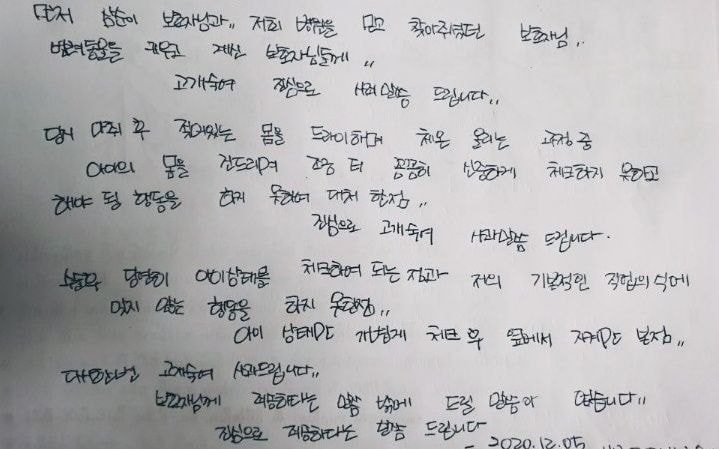 먼저 삼순이 보호자님과,, 저희 병원을 믿고 찾아주셨던 보호자님,,
반려동물을 키우고 계신 보호자님들께,,
고개숙여 진심으로 사과말씀 드립니다,,
당시 마취 후 젖어있는 몸을 드라이하며 체온 올리는 과정 중
아이의 몸을 건드리며 조금 더 꼼꼼히 신중하게 체크하지 못하고
해야 될 행동을 하지 못하여 대처 한점,,
진심으로 고개숙여 사과말씀 드립니다.
당연히 아이상태를 체크하여 되는 점과 저의 기본적인 직업의식에
맞지 않는 행동을 하지 못한점,,
아이 상태만 개첩게 체크 후 옆에서 지켜만 본점,,
다시한번 고개숙여 사과드립니다,,
보호자님께 죄송하다는 말씀 밖에 드릴 말씀이 없습니다,,
진심으로 죄송하다는 말씀 드립니다
- 2020.12.05